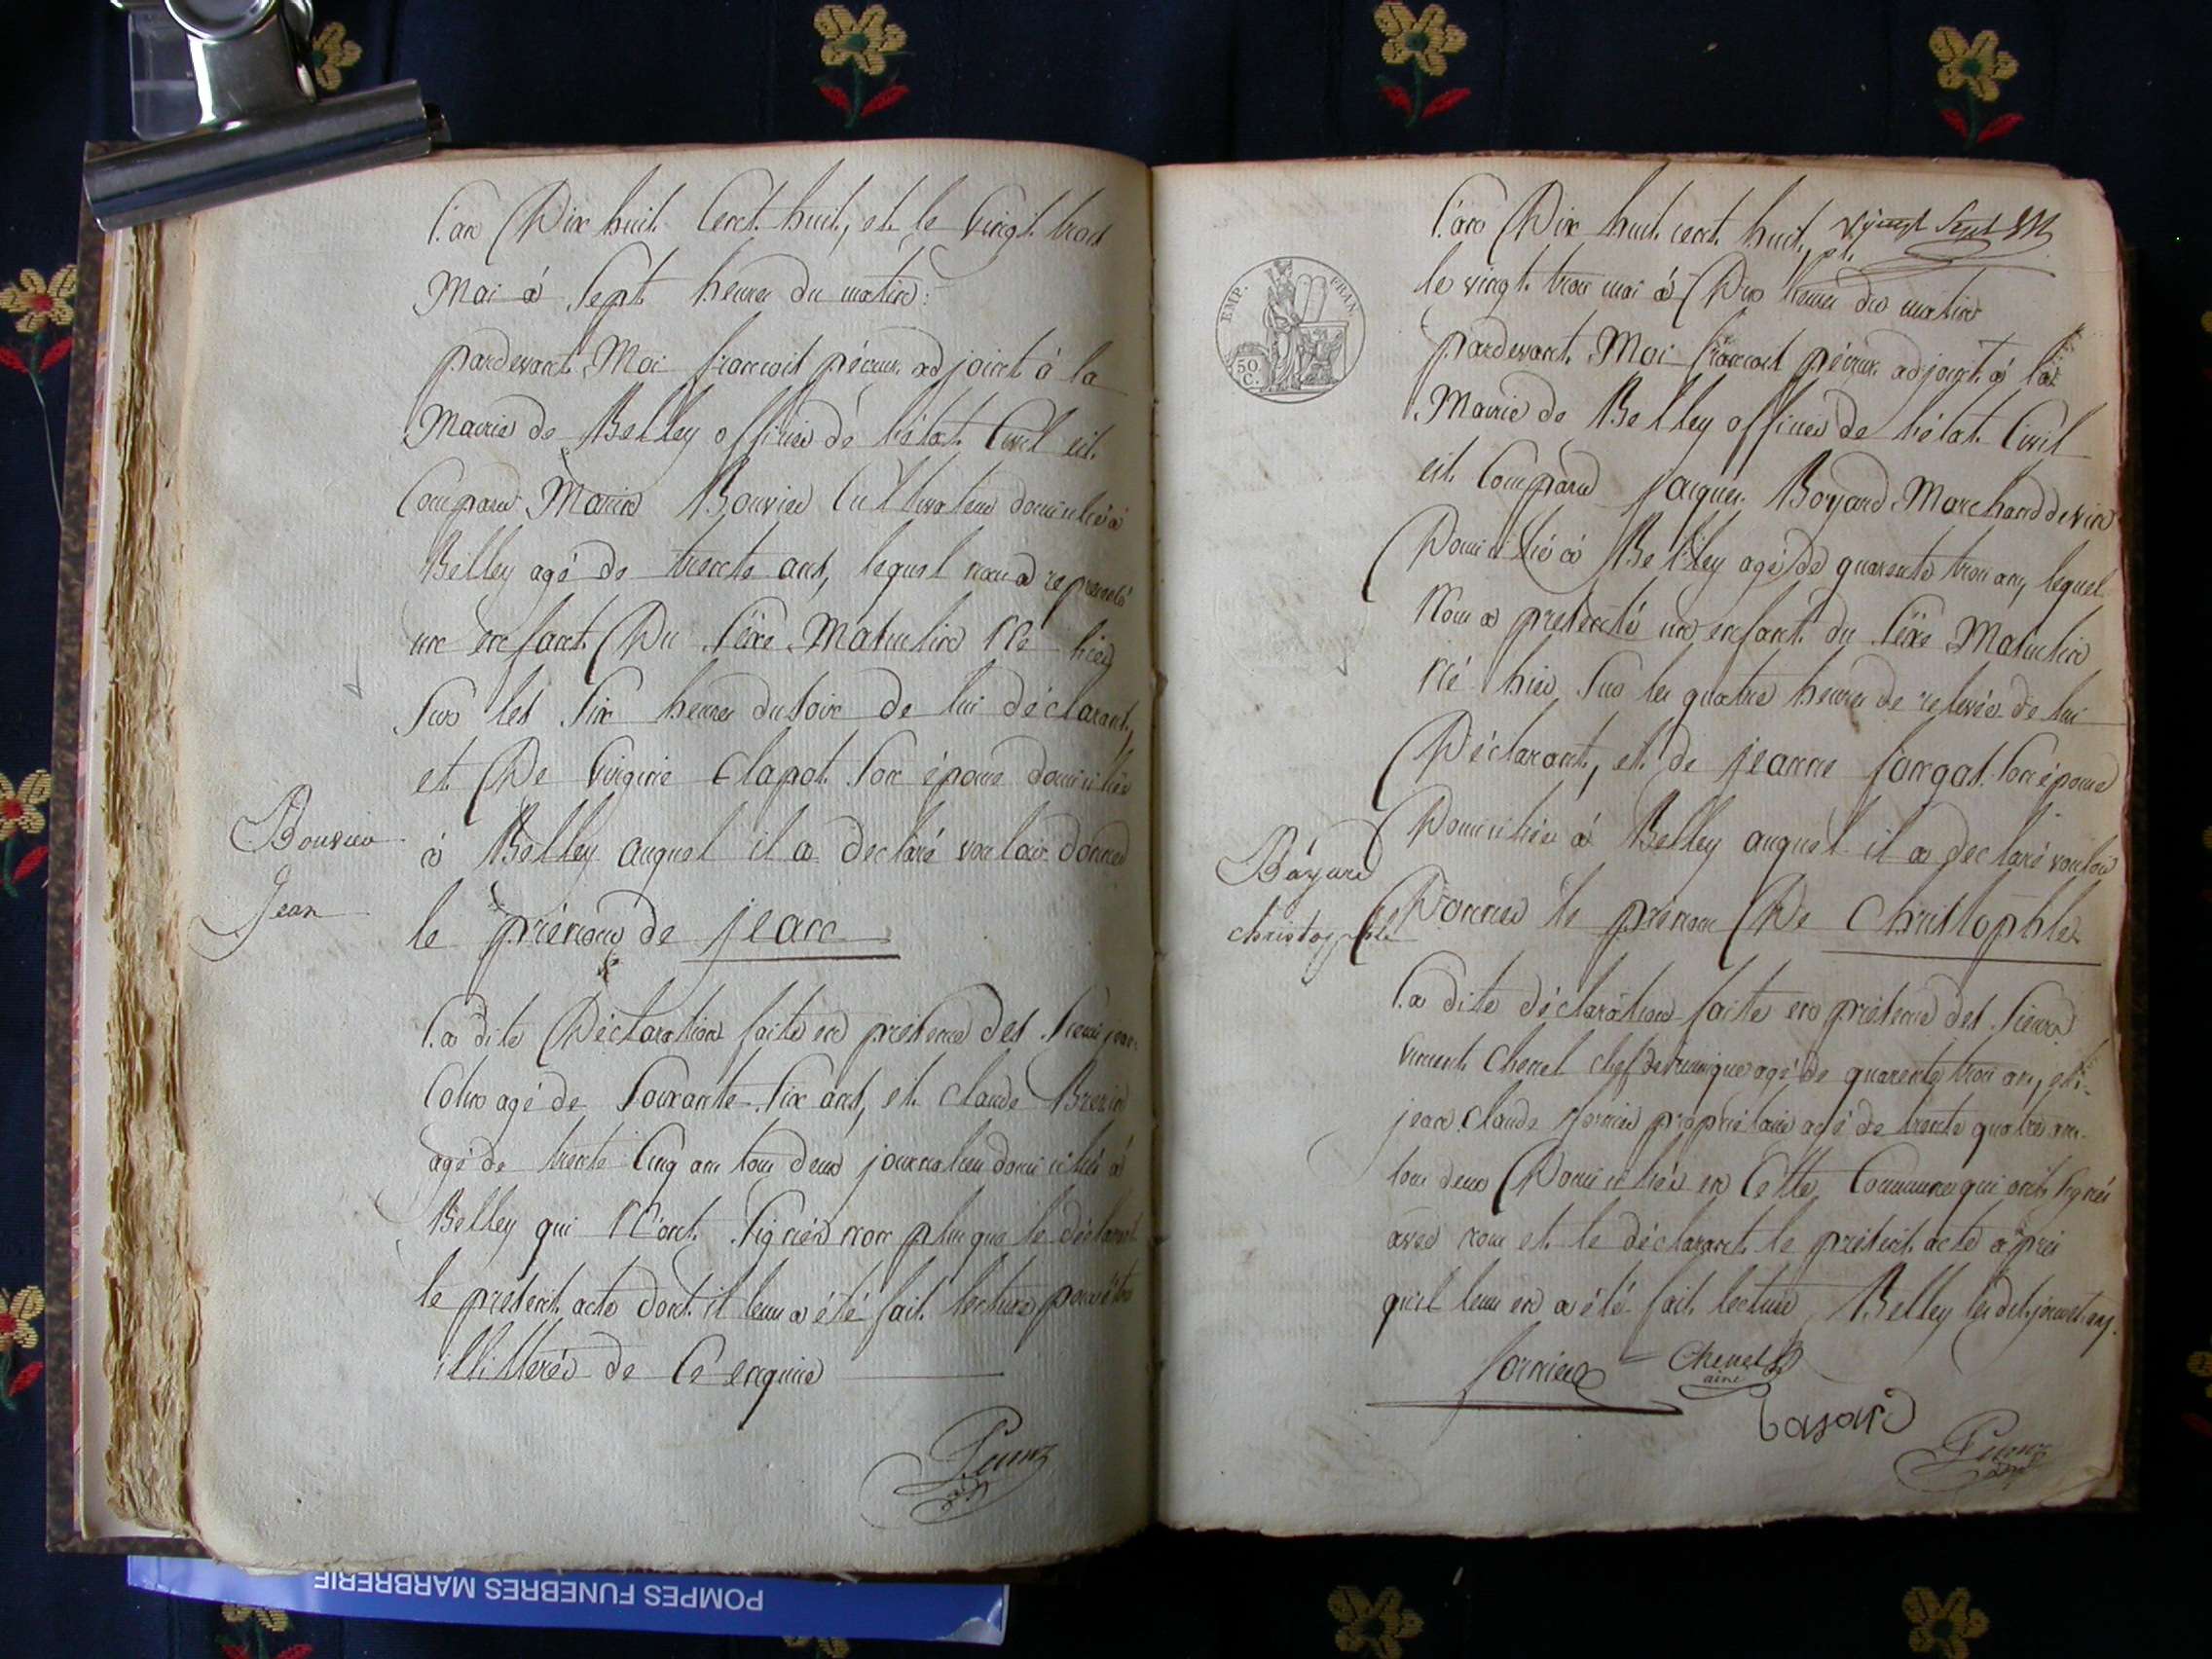 L'an Dix huit Cent huit, et le vingt trois
Mai à Sept heures du matin
pardevant Moi françois pécour adjoint à la
Mairie de Belley officier de l'état Civil est
Comparu Bouvier Cultivateur domicilié à
Belley agé de trente ans, lequel nous a représenté
un enfant Du Sexe Masculin Né hier
Sur les Six heures du soir de lui déclarant,
et De virginie Clapot Son épouse domiciliée
à Belley auquel il a declaré vouloir donner
le prénom de jean
Bouvier
Jean
La dite Déclaration faite en présence des Sieurs
agé de Soixante Six ans, et Claude
agé de trente Cinq ans tous deux journaliers domiciliés à
Belley qui N'ont Signés non plus que le déclarant
le présent acte dont il leur a été fait lecture pour être
illitterés de Ce enquis
L'an Dix huit cent huit, et
vingt Sept
EMP. FRAN.
50 C.
le vingt trois mai à Dix heures du matin
pardevant Moi françois pécour adjoint à la
Mairie de Belley officier de l'état Civil
est Comparu jacques Boyard Marchand de vin
Domicilié à Belley agé de quarante trois ans, lequel
Nous a presenté un enfant du Sexe Masculin
Né hier Sur les quatre heures de relevée de lui
Déclarant, et de jeanne fongat Son épouse
Domiciliée à Belley auquel il a declaré vouloir
Donner le prénom De Christophle
Bayard
christophle
La dite déclaration faite en présence des Sieurs
vincent Chenel chef de musique agé de quarante trois ans, et
jean Claude fornier propriétaire agé de trente quatre ans
tous deux Domiciliés en Cette Commune qui ont signés
avec nous et le déclarant le présent acte après
qu'il leur en a été fait lecture, Belley les dits jour et an
fornier Chenel
ainé
Bayard